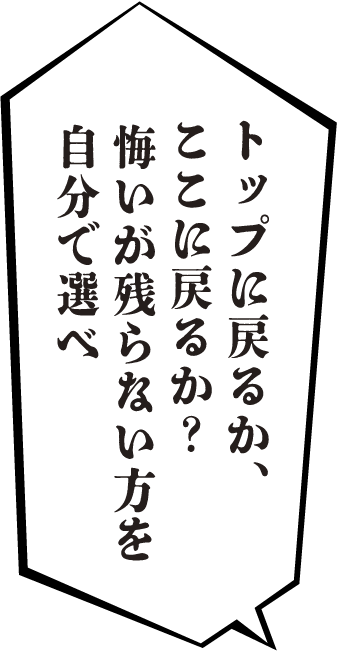 トップに戻るか、
ここに戻るか？
悔いが残らない方を
自分で選べ